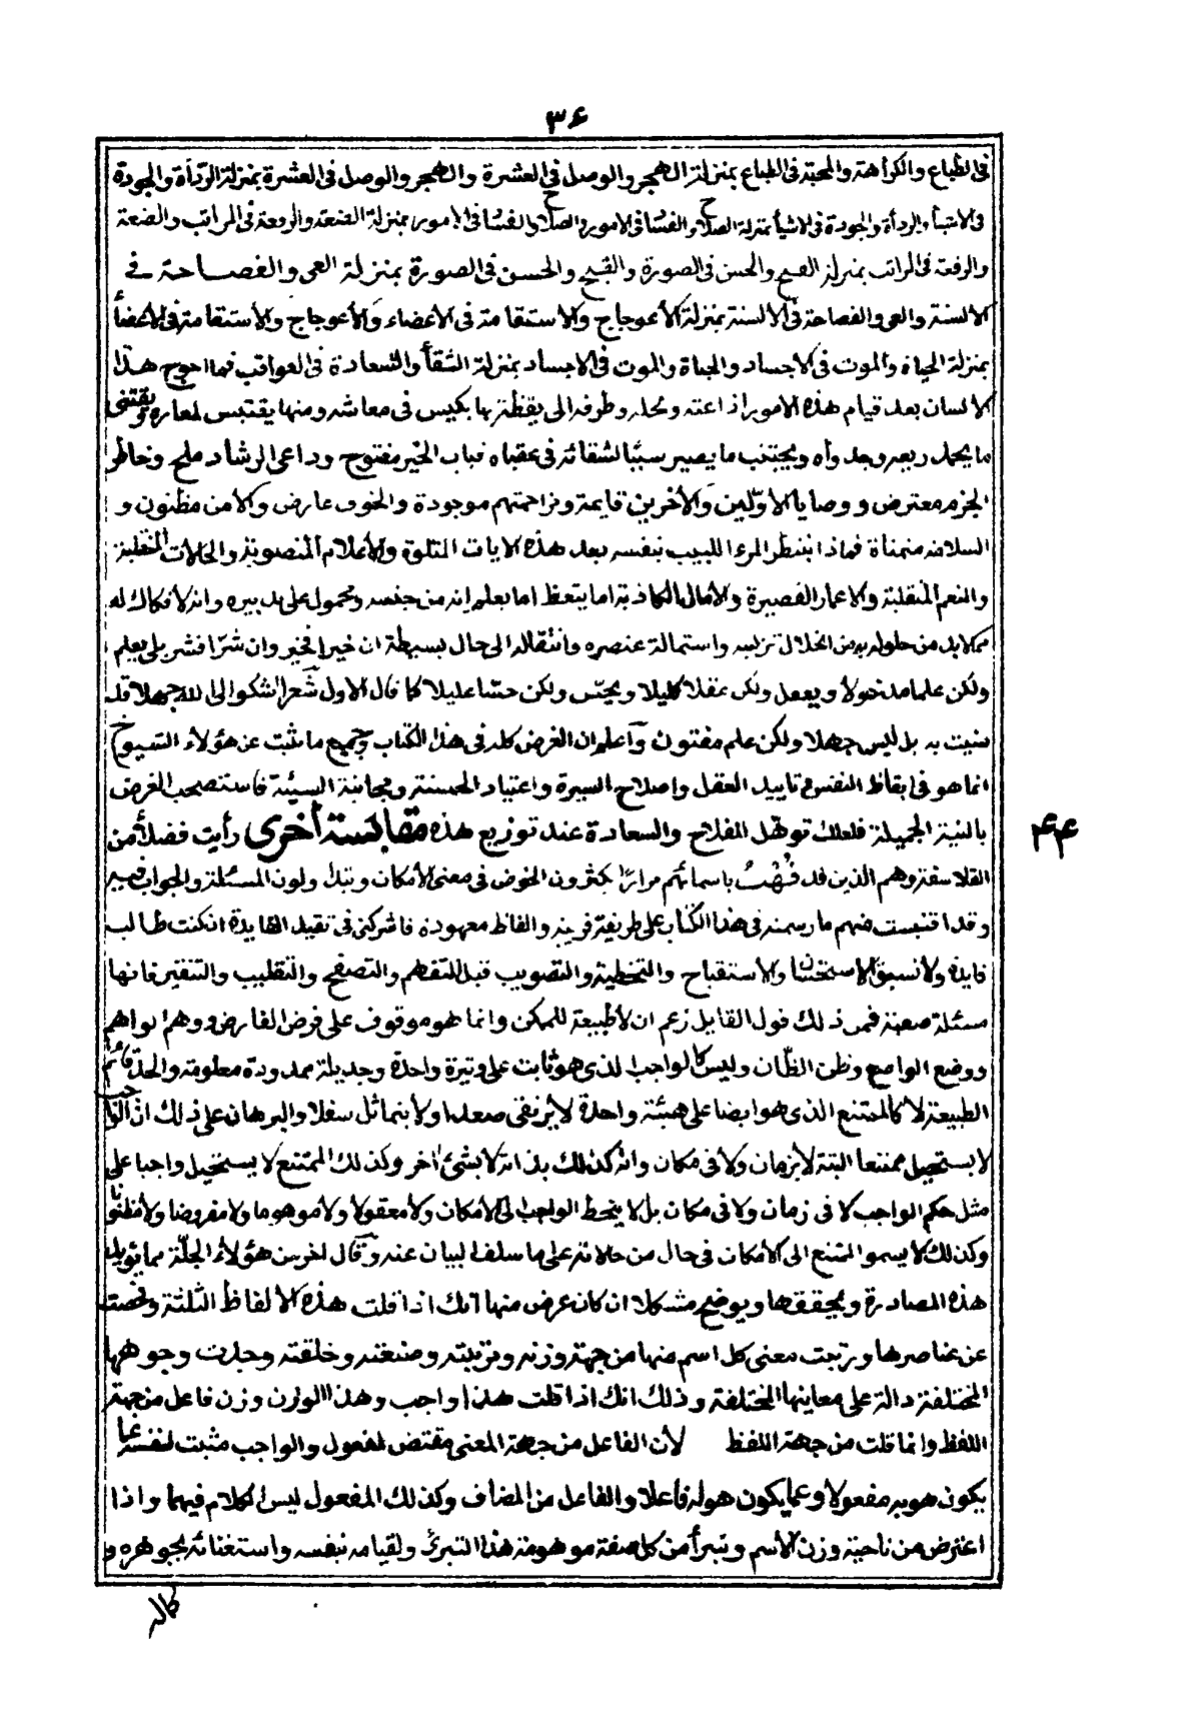 ۳۶
فى الطباع والكراهة والمحبة فى الطباع بمنزلة الهجر والوصل فى العشرة والهجر والوصل فى العشرة بمنزلة الردأة والجودة
فى الاشيأ والردأة والجودة فى الاشيأ بمنزلة الصلاح والفساد فى الامور والصلاح والفساد فى الامور بمنزلة الضعة والرفعة فى المراتب والضعة
والرفعة فى المراتب بمنزلة القبيح والحسن فى الصورة والقبيح والحسن فى الصورة بمنزلة العى والفصاحة فى
الالسنة والعى والفصاحة فى الالسنة بمنزلة الأعوجاج والاستقامة فى الاعضاء والأعوجاج والأستقامة فى الأعضأ
بمنزلة الحياة والموت فى الاجساد والحياة والموت فى الاجساد بمنزلة الشقأ والسعادة فى العواقب فما احوج هذا
الانسان بعد قيام هذه الامور اذاعته ومحله وطرفه الى يقظة بها يكيس فى معاشه ومنها يقتبس لمعاده ويقتنى
ما يحمد ريعه وجدواه ويجتنب ما يصير سببًا لشقائه فى عقباه فباب الخير مفتوح وداعى الرشاد ملح وخاطر
الحزم معترض ووصايا الاولين والأخرين قايمة ومزاحمتهم موجودة والخوف عارض والامن مظنون و
السلامة متمناة فماذا ينتظر المرء اللبيب بنفسه بعد هذه الايات المتلوة والأعلام المنصوبة والحالات المتقلبة
والنعم المنقلبة والاعمار القصيرة والأمال الكاذبة اما يتعظ اما يعلم انه من جنسه ومحمول على تدبيره وانه لا فكاك له
مما لابد من حلوله به من انحلال تركيبه واستمالة عنصره وانتقاله الى حال بسيطة ان خيرا فخير وان شرّا فشر بلى يعلم
ولكن علما مدخولا ويعقل ولكن عقلا كليلا ويحس ولكن حسّا عليلا كما قال الاول شعر اشكو الى الله جهلا قد
منيت به بل ليس جهلا ولكن علم مفتون وأعلم ان الغرض كله فى هذا الكتاب وجميع ما نثبت عن هؤلاء الشيوخ
انما هو فى ايقاظ النفس وتاييد العقل واصلاح السيرة واعتياد الحسنة ومجانبة السيئة فاستصحب الغرض
بالنية الجميلة فلعلك توهل للفلاح والسعادة عند توزيع هذه مقابسة أخرى رأيت فضلأ من
۴۴
الفلاسفة وهم الذين قد نُهْتُ باسمائهم مرارًا يكثرون الخوض فى معنى الأمكان ويتداولون المسئلة والجواب فيه
وقد اقتبست منهم ما رسمته فى هذا الكتاب على طريقة قريبة والفاظ معهودة فاشركنى فى تقييد الفايدة ان كنت طالب
فايدة ولا تسبق الاستحسان والاستقباح والتخطية والتصويب قبل التفهم والتصفح والتقليب والتنقير فانها
مسئلة صعبة فمن ذلك قول القايل زعم ان لا طبيعة للممكن وانما هو موقوف على فرض الفارض ووهم الواهم
ووضع الواضع وظن الظّان وليس كالواجب الذى هو ثابت على وتيرة واحدة وجديلة ممدودة معلومة والحد قائم
الطبيعة لا كالممتنع الذى هو ايضا على هيئة واحدة لا يرتقى صعدا ولا يتماثل سفلا والبرهان على ذلك ان الواجب
لا يستحيل ممتنعا البتة لا بزمان ولا فى مكان وانه كذلك بذاته لا بشئ اخر وكذلك الممتنع لا يستحيل واجبا على
مثل حكم الواجب لا فى زمان ولا فى مكان بل لا ينحط الواجب الى الأمكان ولا معقولا ولا موهوما ولا مفروضا ولا مظنونا
وكذلك لا يسمو الممتنع الى الأمكان فى حال من حالاته على ما سلف البيان عنه وقال اخر من هؤلأء الجلّة مما يؤيد
هذه المصادرة ويحققها ويوضح مشكلا ان كان عرض منها انك اذا قلت هذه الالفاظ الثلثة وفحصت
عن عناصرها ورتبت معنى كل اسم منها من جهة وزنه ورتبته وصنعته وخلقته وجدت وجوهها
المختلفة دالة على معاينها المختلفة وذلك انك اذا قلت هذا واجب وهذا الوزن وزن فاعل من جهة
اللفظ وانما قلت من جهة اللفظ لأن الفاعل من جهة المعنى مقتض لمفعول والواجب مثبت لنفسه عما
يكون هو به مفعولا وعما يكون هو له فاعلا والفاعل من المضاف وكذلك المفعول ليس الكلام فيهما واذا
اعترض من ناحية وزن الأسم وتبرأ من كل صفة موهومة هذا التبرّئ ولقيامه بنفسه واستغنائه بجوهره و
كماله